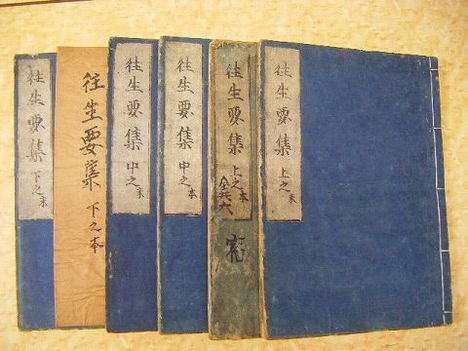 往生要集 上之末
往生要集 上之本
全共六
往生要集 中之本
往生要集 中之末
往生要集 下之本
往生要集 下之末